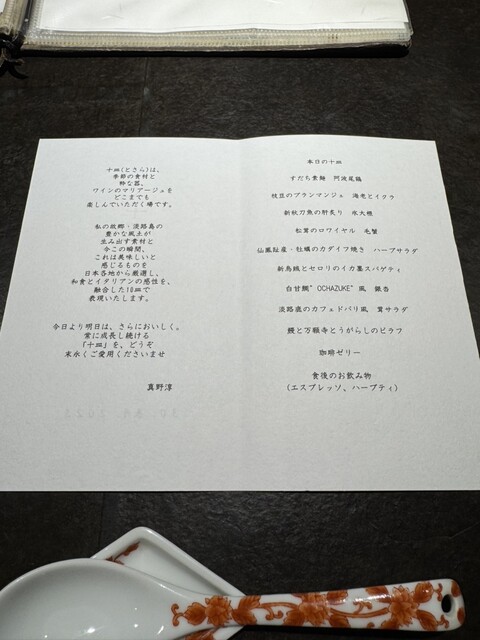 十皿(とさら)は、
季節の食材と
粋な器、
ワインのマリアージュを
どこまでも
楽しんでいただく場です。
私の故郷・淡路島の
豊かな風土が
生み出す素材と
今この瞬間、
これは美味しいと
感じるものを
日本各地から厳選し、
和食とイタリアンの感性を、
融合した10皿で
表現いたします。
今日より明日は、さらにおいしく。
常に成長し続ける
「十皿」を、どうぞ
末永くご愛用くださいませ
真野淳
本日の十皿
すだち素麺　阿波尾鶏
枝豆のブランマンジェ　海老とイクラ
新秋刀魚の肝炙り　水大根
松茸のロワイヤル　毛蟹
仙鳳趾産・牡蠣のカダイフ焼き　ハーブサラダ
新烏賊とセロリのイカ墨スパゲティ
白甘鯛”OCHAZUKE”風　銀杏
淡路鹿のカフェドパリ風　茸サラダ
鰻と万願寺とうがらしのピラフ
珈琲ゼリー
食後のお飲み物
(エスプレッソ、ハーブティ)